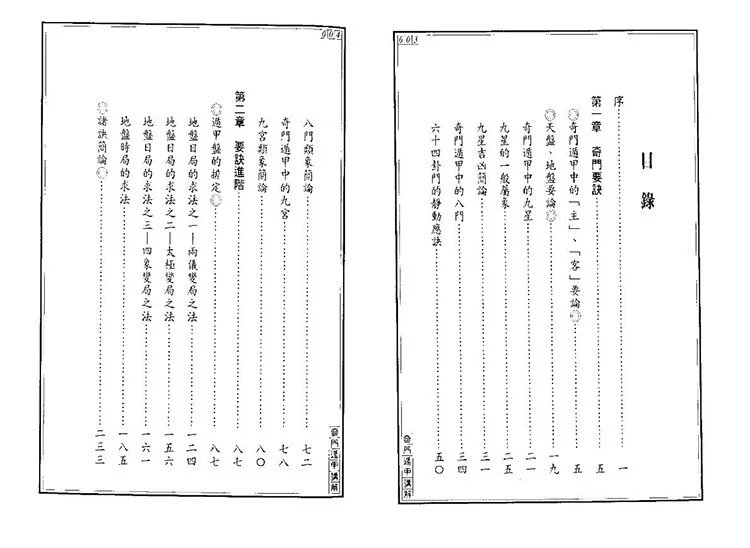 003
目錄
序⋯⋯一
第一章 奇門要訣⋯⋯五
◎奇門遁甲中的「主」、「客」要論◎⋯⋯五
◎天盤、地盤要論◎⋯⋯一九
奇門遁甲中的九星⋯⋯二一
九星的一般屬象⋯⋯二五
九星吉凶簡論⋯⋯三一
奇門遁甲中的八門⋯⋯三四
六十四卦門的靜動應訣⋯⋯五〇
奇門遁甲講解
004
八門類象簡論⋯⋯七二
奇門遁甲中的九宮⋯⋯七八
九宮類象簡論⋯⋯八〇
第二章 要訣進階⋯⋯八七
◎遁甲盤的排定◎⋯⋯八七
地盤日局的求法之一—兩儀變局之法⋯⋯一二四
地盤日局的求法之二—太極變局之法⋯⋯一五六
地盤日局的求法之三—四象變局之法⋯⋯一六一
地盤時局的求法⋯⋯一八五
◎諸訣簡論◎⋯⋯二三三
奇門遁甲講解